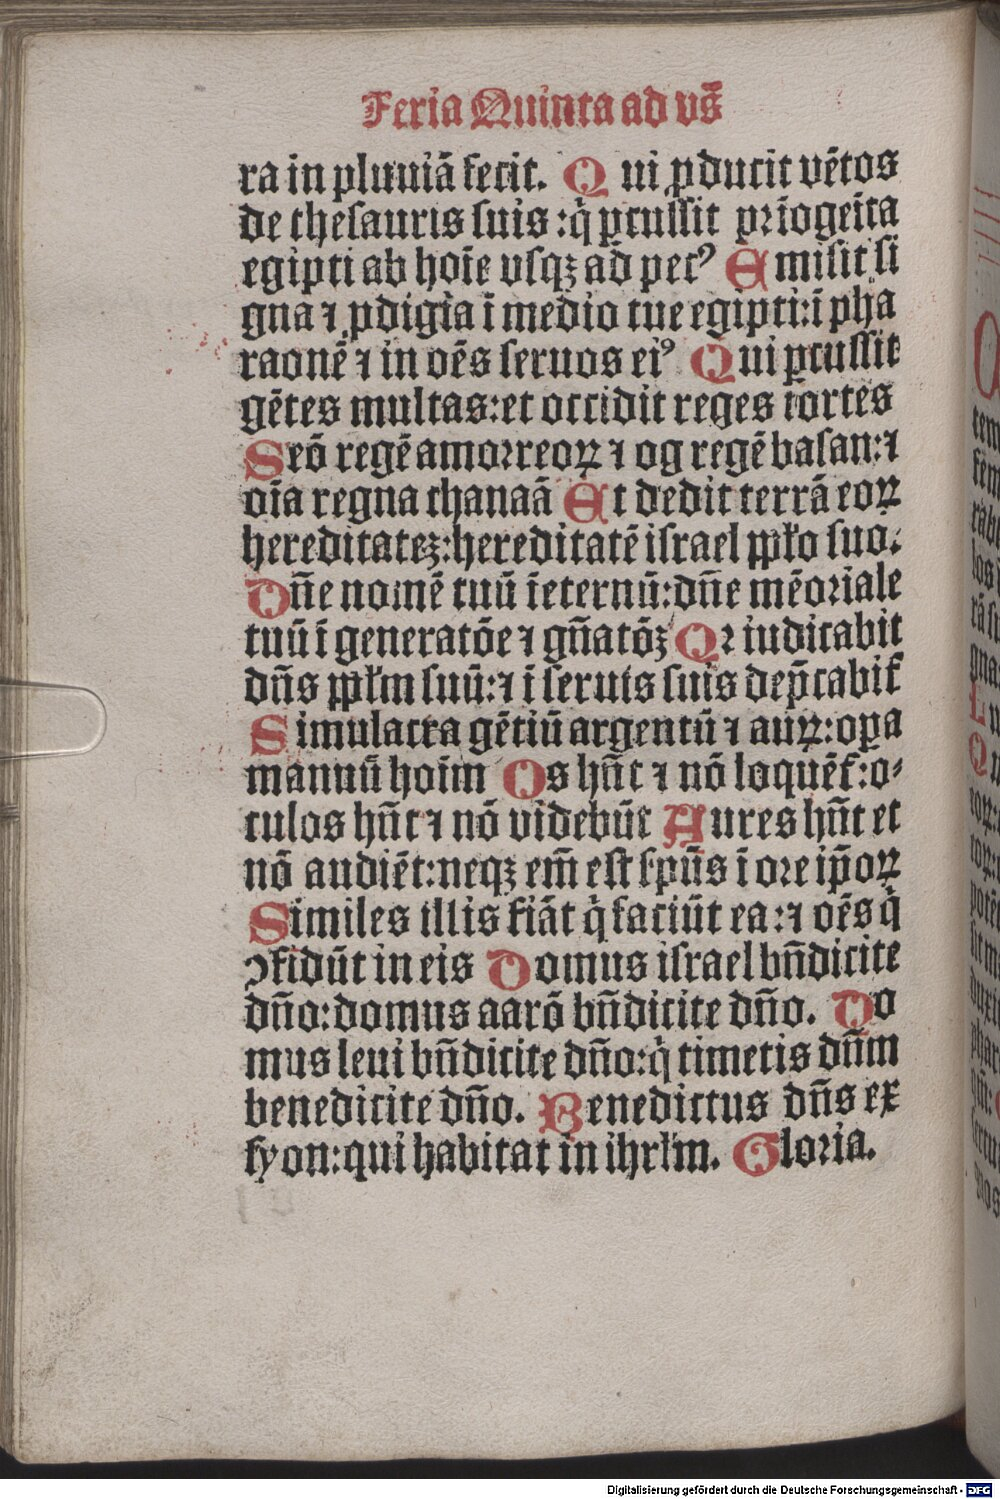 Feria Quinta ad vs̄
ra in pluuiā fecit. Qui ꝓducit vētos
de thesauris suis :q̇ ꝑcussit prīogēita
egipti ab hoīe vsqꝫ ad pecꝰ Emisit si
gna ⁊ ꝓdigia ī medio tue egipti:ī pha
raonē ⁊ in oēs seruos eiꝰ Qui ꝑcussit
gētes multas:et occidit reges fortes
Seō regē amorreoꝝ ⁊ og regē basan:⁊
oīa regna chanaā Et dedit terrā eoꝝ
hereditateꝫ:hereditatē israel ppło suo.
Dn̄e nomē tuū ī eternū:dn̄e mēoriale
tuū ī generatōe ⁊ gn̄atōꝫ Qr iudicabit
dn̄s ppłm suū:⁊ ī seruis suis dep̄cabit᷑
Simulacra gētiū argentū ⁊ auꝝ:oꝑa
manuū hoīm Os hn̄t ⁊ nō loquēt᷑:o⸗
culos hn̄t ⁊ nō videbūt Aures hn̄t et
nō audiēt:neqꝫ em̄ est spūs ī ore ip̄oꝝ
Similes illis fiāt q̇ faciūt ea:⁊ oēs q̇
ꝯfidūt in eis Domus israel bn̄dicite
dn̄o:domus aarō bn̄dicite dn̄o. Do
mus leui bn̄dicite dn̄o:q̇ timetis dn̄m
benedicite dn̄o. Benedictus dn̄s ex
syon:qui habitat in ihrłm. Gloria.
Digitalisierung gefördert durch die Deutsche Forschungsgemeinschaft - DFG